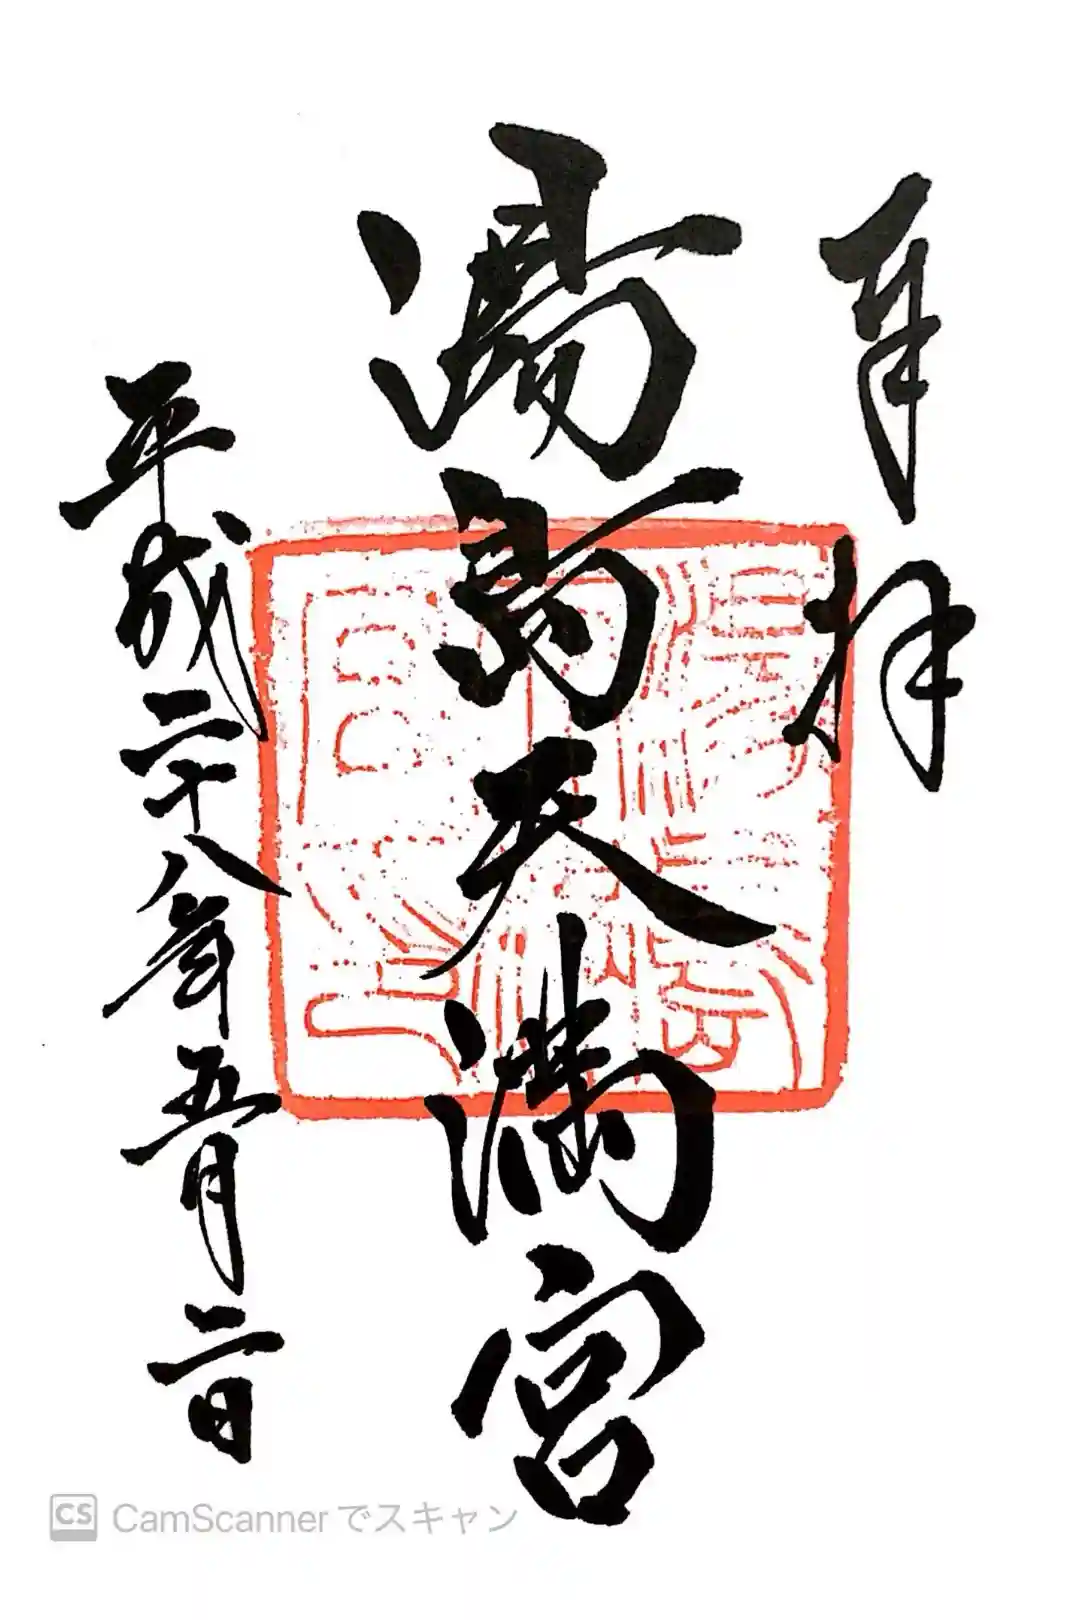 奉拝
湯島天満宮
平成二十八年五月二日
CS CamScannerでスキャン